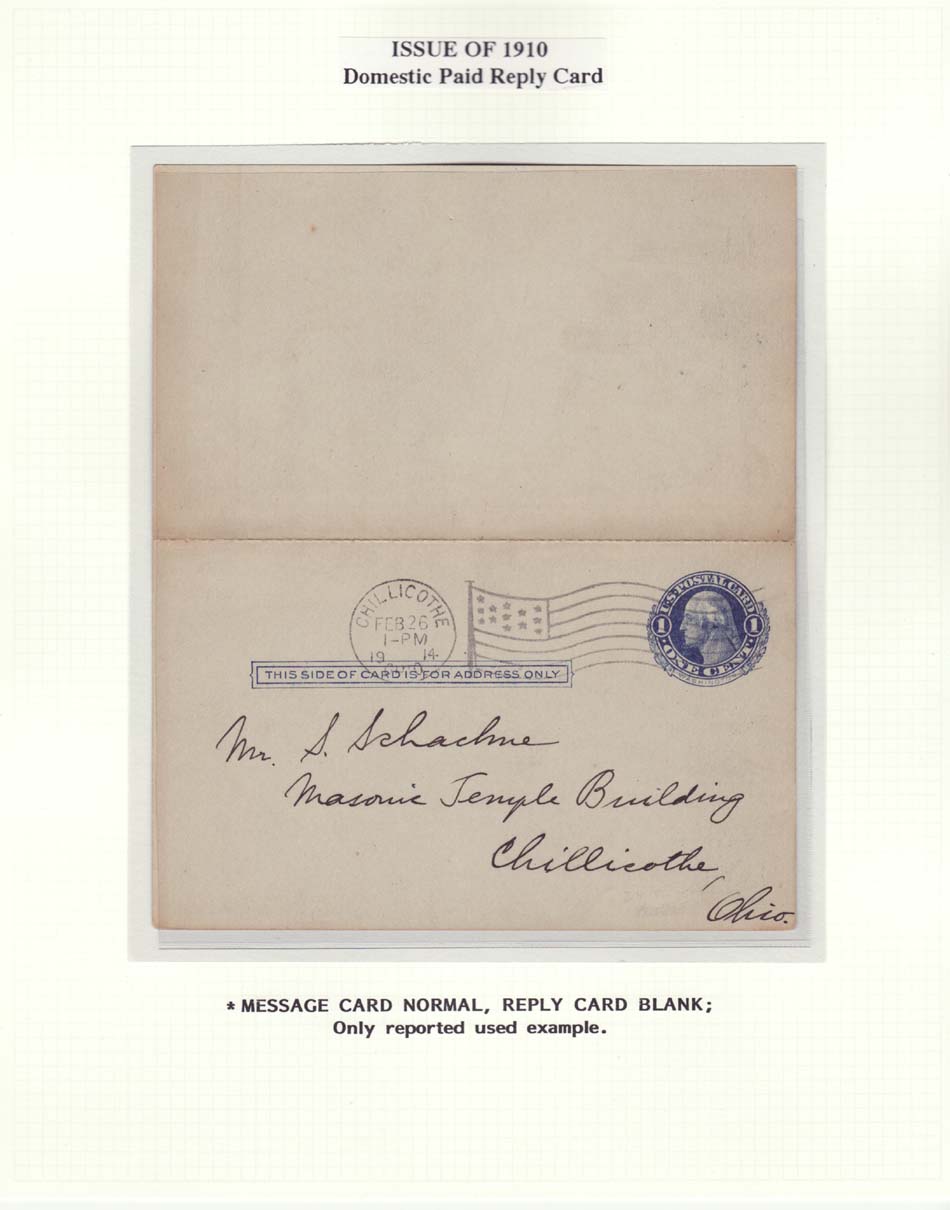 ISSUE OF 1910
Domestic Paid Reply Card
CHILLICOTHE
FEB 26
1-PM
19 14
OHIO
U.S. POSTAL CARD
1 1
ONE CENT
WASHINGTON
THIS SIDE OF CARD IS FOR ADDRESS ONLY
Mr. S. Schachne
Masonic Temple Building
Chillicothe,
Ohio.
* MESSAGE CARD NORMAL, REPLY CARD BLANK;
Only reported used example.